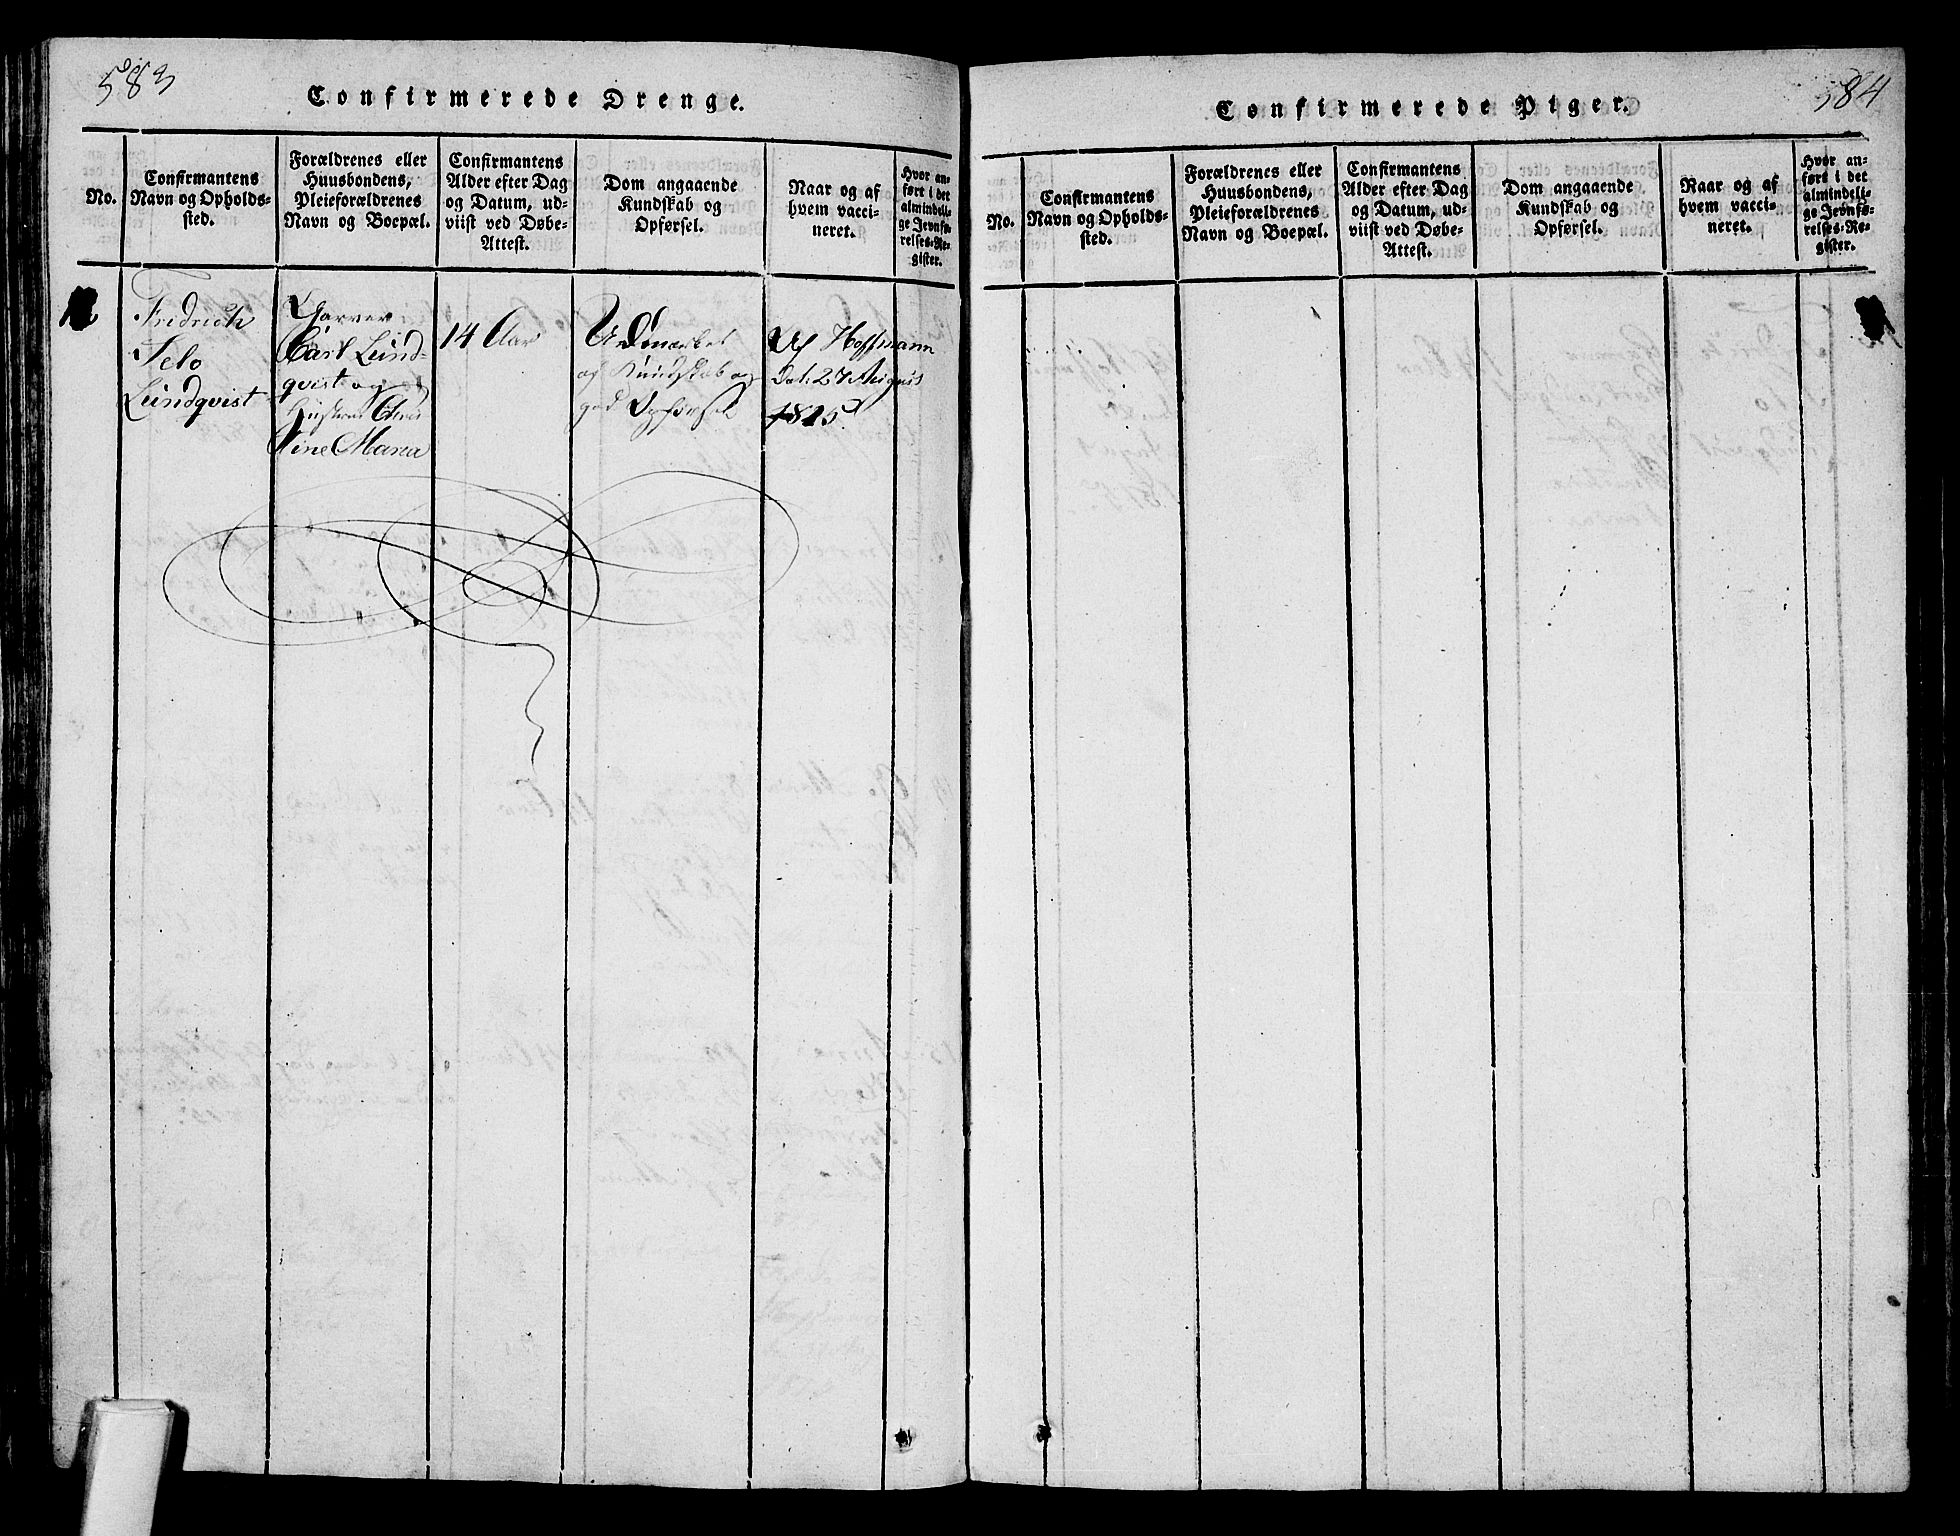 583
Confirmerede Drenge.
No.
Confirmantens
Navn og Opholds-
sted.
Forældrenes eller
Huusbondens,
Pleieforældrenes
Navn og Boepæl.
Confirmantens
Alder efter Dag
og Datum, ud-
viist ved Døbe-
Attest.
Dom angaaende
Kundskab og
Opførsel.
Naar og af
hvem vacci-
neret.
Hvor an-
ført i det
almindeli-
ge Jevnfø-
relses-Re-
gister.
Fridrich
Selo
Lundqvist
Garver
Carl Lund-
qvist og
Hustru
Stine Maria
14 Aar
Udmærket
og Kundskab og
god Opførsel
Af Hoffmann
Dat: 27 August
1815
584
Confirmerede Piger.
No.
Confirmantens
Navn og Opholds-
sted.
Forældrenes eller
Huusbondens,
Pleieforældrenes
Navn og Boepæl.
Confirmantens
Alder efter Dag
og Datum, ud-
viist ved Døbe-
Attest.
Dom angaaende
Kundskab og
Opførsel.
Naar og af
hvem vacci-
neret.
Hvor an-
ført i det
almindeli-
ge Jevnfø-
relses-Re-
gister.